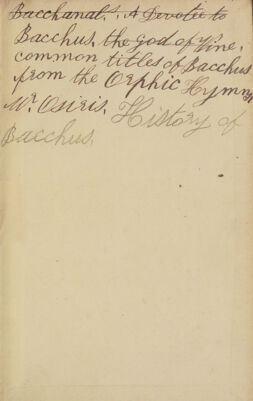 Bacchanal, A Devotee to
Bacchus, the god of Vine,
common titles of Bacchus
from the Orphic Hymns
Mr. Osiris. History of
Bacchus.